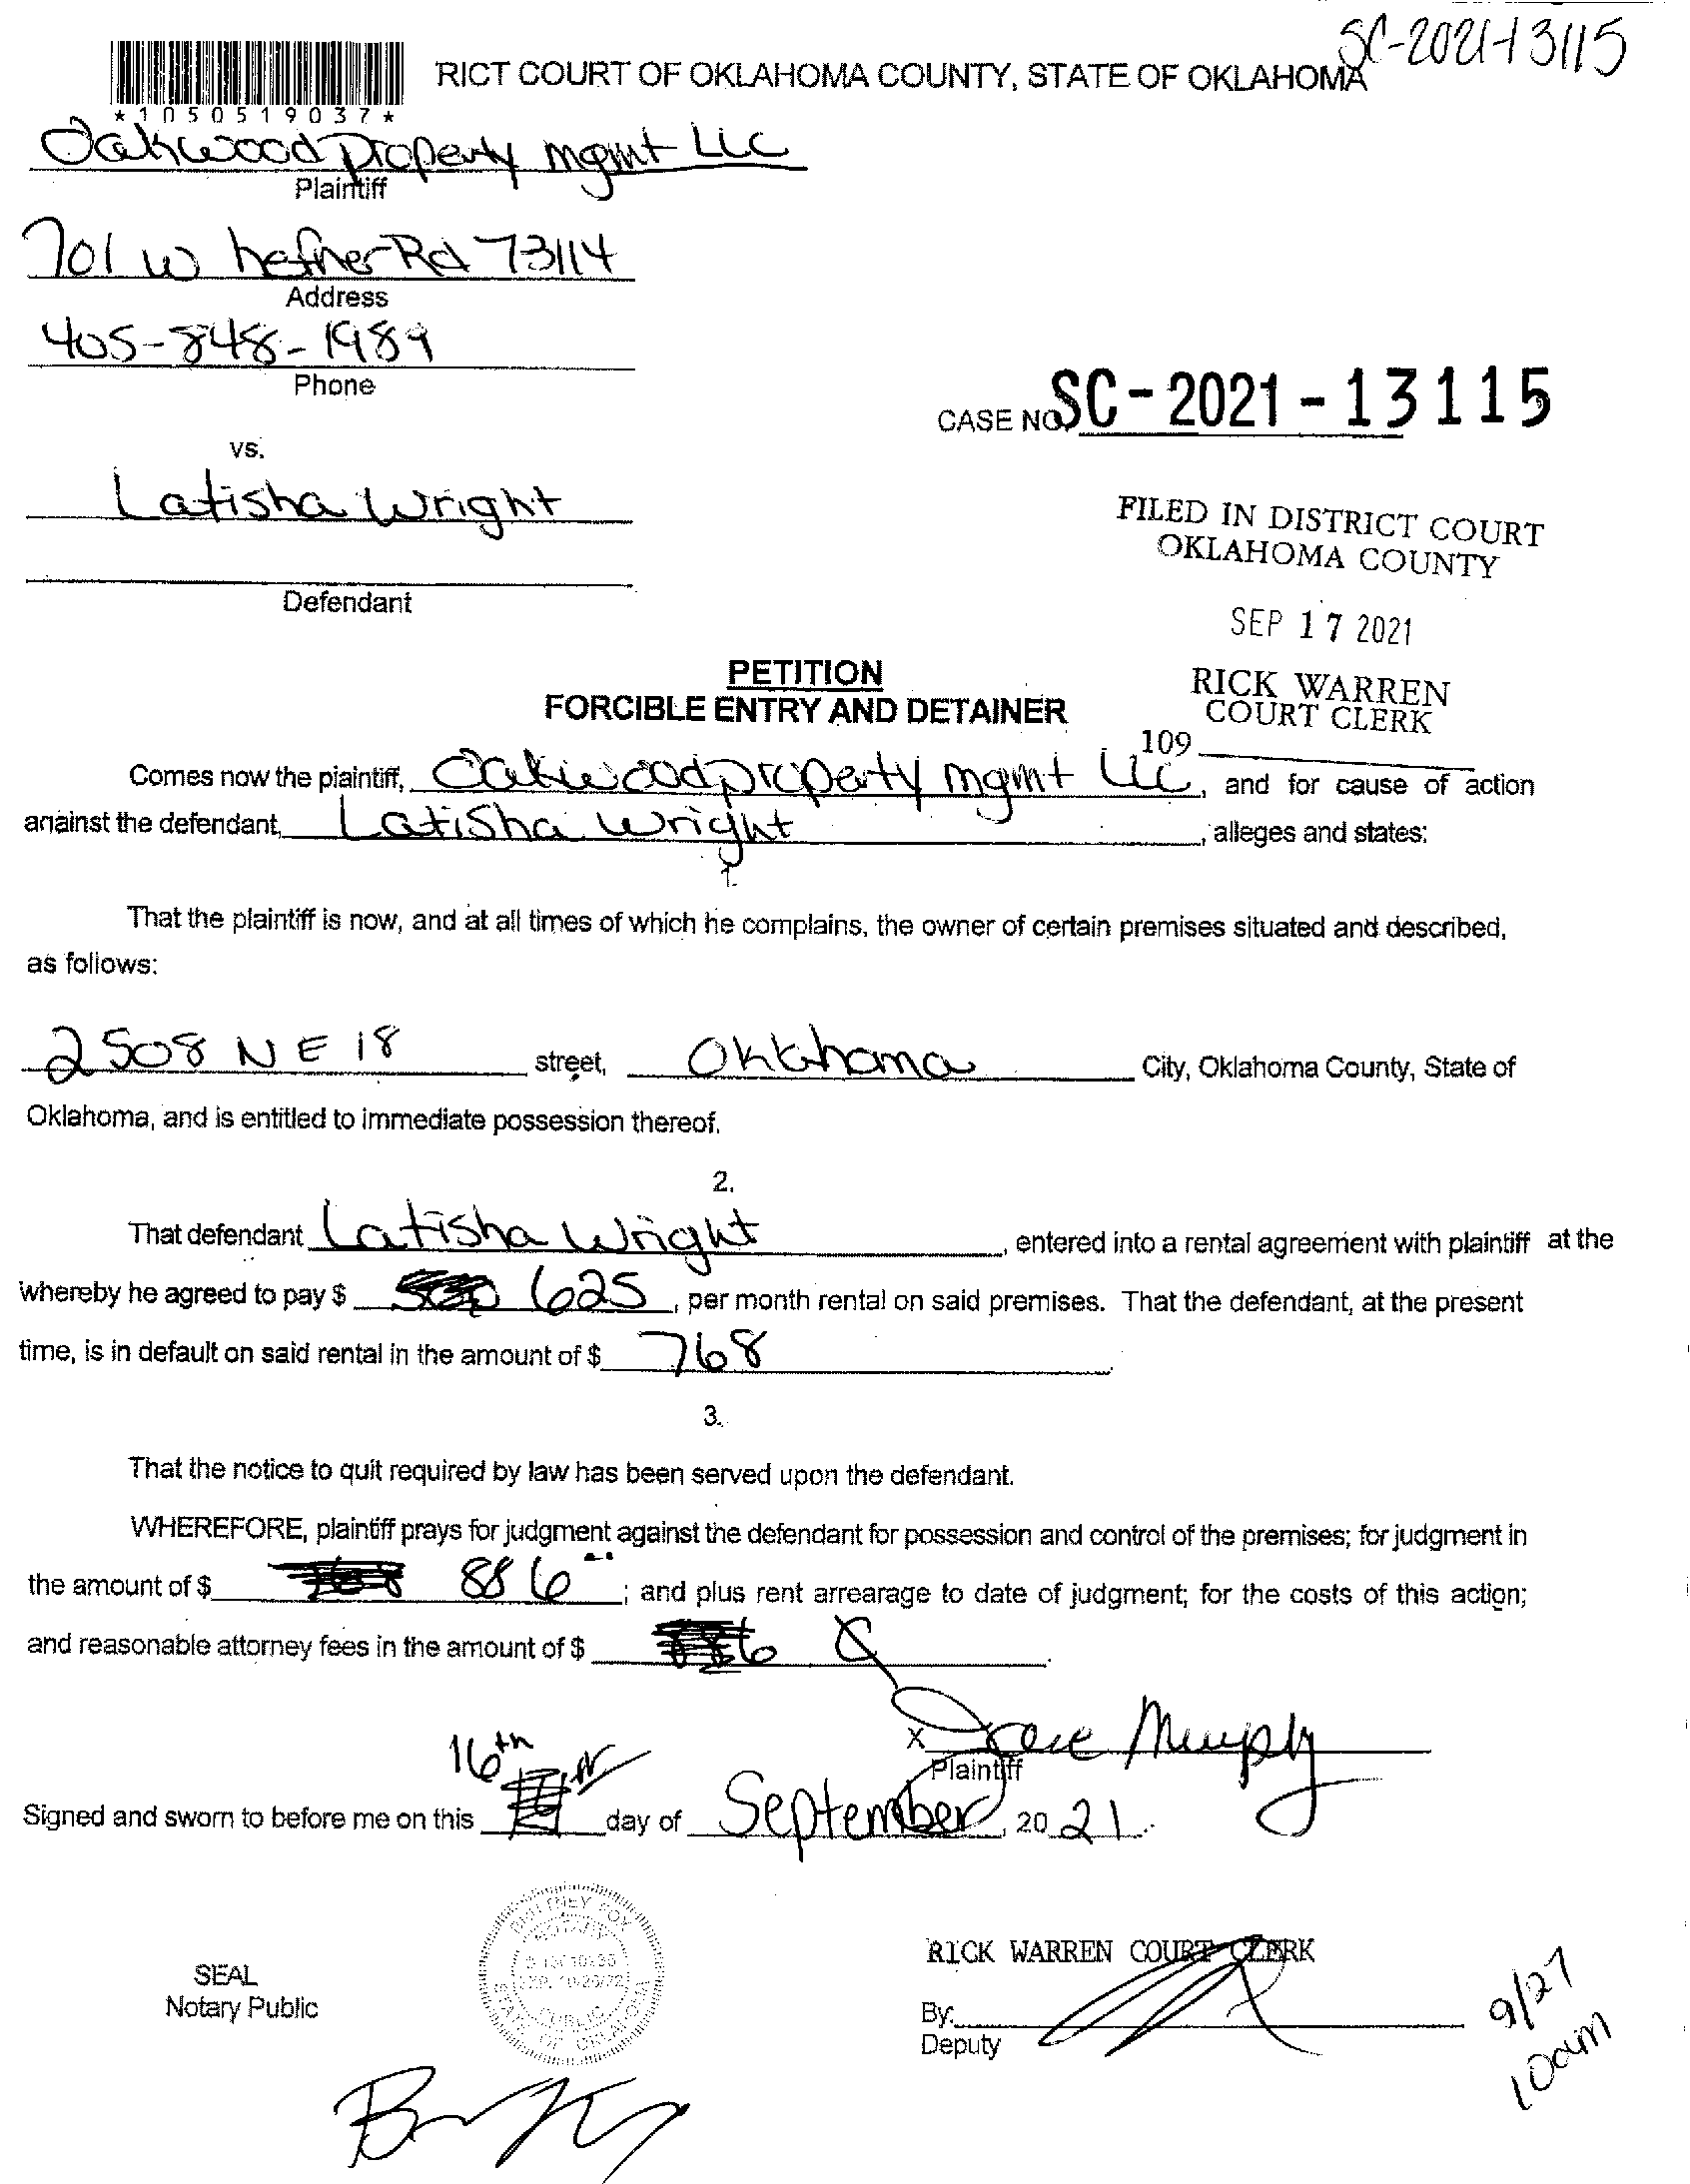 SC-2021-13115
RICT COURT OF OKLAHOMA COUNTY, STATE OF OKLAHOMA
*1050519037*
Oakwood Property mgmt LLC
Plaintiff
701 W hefner Rd 73114
Address
405-848-1989
Phone
CASE NO. SC-2021-13115
vs.
Latisha Wright
Defendant
FILED IN DISTRICT COURT
OKLAHOMA COUNTY
SEP 17 2021
RICK WARREN
COURT CLERK
109
PETITION
FORCIBLE ENTRY AND DETAINER
Comes now the plaintiff, Oakwood property mgmt LLC, and for cause of action
against the defendant, Latisha Wright, alleges and states:
1.
That the plaintiff is now, and at all times of which he complains, the owner of certain premises situated and described,
as follows:
2508 NE 18 street, Oklahoma City, Oklahoma County, State of
Oklahoma, and is entitled to immediate possession thereof.
2.
That defendant Latisha Wright, entered into a rental agreement with plaintiff at the
whereby he agreed to pay $ 625, per month rental on said premises. That the defendant, at the present
time, is in default on said rental in the amount of $ 768.
3.
That the notice to quit required by law has been served upon the defendant.
WHEREFORE, plaintiff prays for judgment against the defendant for possession and control of the premises; for judgment in
the amount of $ 886; and plus rent arrearage to date of judgment; for the costs of this action;
and reasonable attorney fees in the amount of $
X Murphy
Plaintiff
16th
Signed and sworn to before me on this day of September, 20 21.
SEAL
Notary Public
BRITTNEY FOX
NOTARY
PUBLIC
STATE OF OKLAHOMA
RICK WARREN COURT CLERK
By:
Deputy
9/27
10am